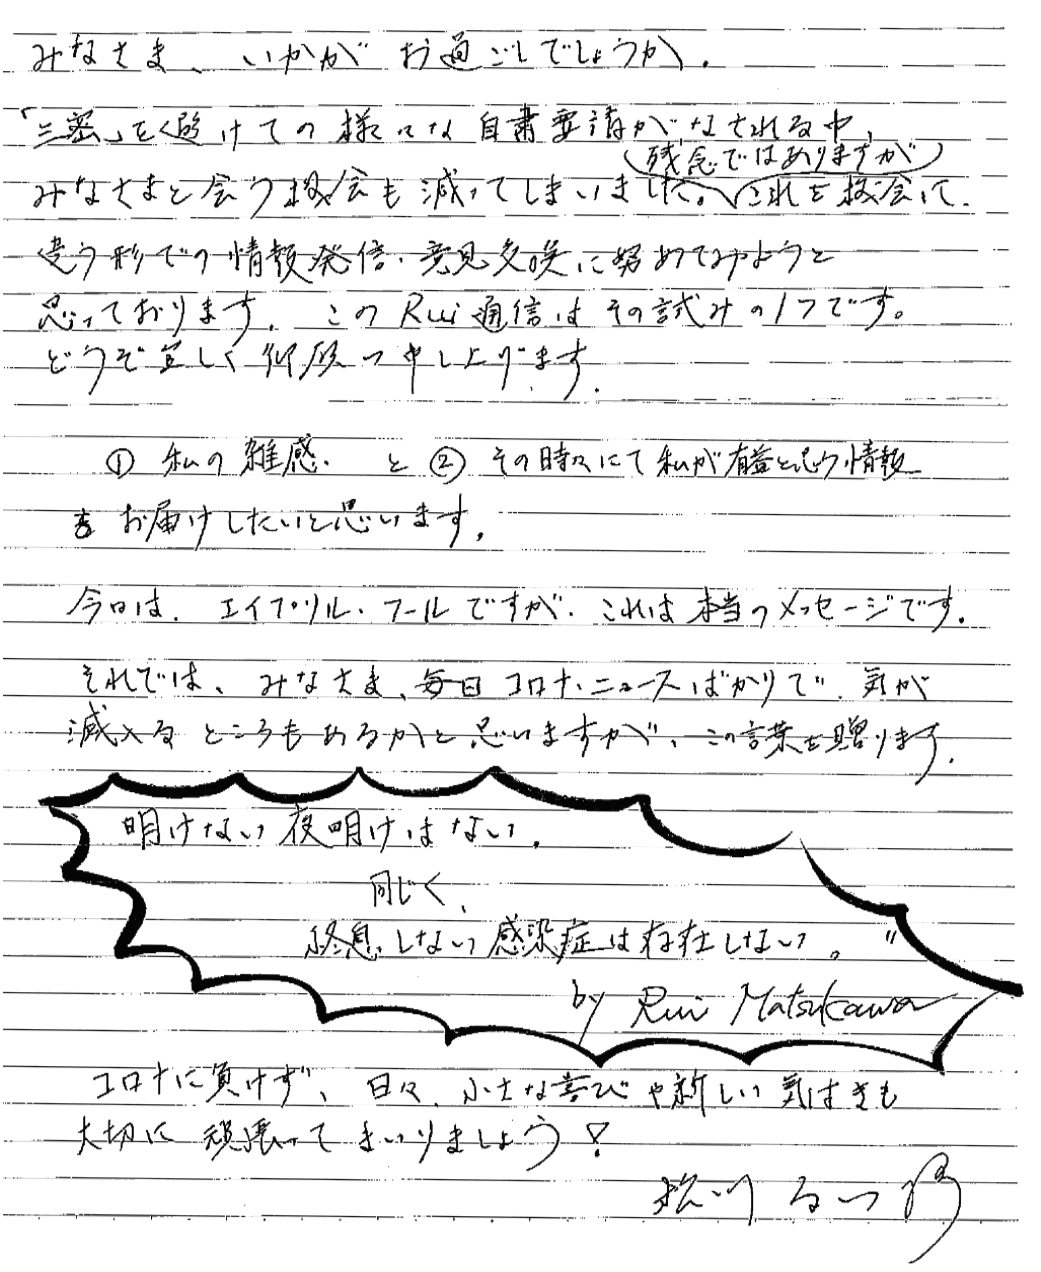 みなさま、いかがお過ごしでしょうか。
「三密」を避けての様々な自粛要請がなされる中、
(残念ではありますが)
みなさまと会う機会も減ってしまいました。これを機会に、
違う形での情報発信・意見交換に努めてみようと
思っております。このRui通信はその試みの1つです。
どうぞ宜しく御願い申し上げます。
① 私の雑感、と ② その時々にて私が有益と思う情報
をお届けしたいと思います。
今日は、エイプリル・フールですが、これは本当のメッセージです。
それでは、みなさま、毎日コロナ・ニュースばかりで、気が
滅入るところもあるかと思いますが、この言葉を贈ります。
明けない夜明けはない。
同じく、
終息しない感染症は存在しない。"
by Rui Matsukawa
コロナに負けず、日々、小さな喜びや新しい気付きも
大切に頑張ってまいりましょう!
松川るい